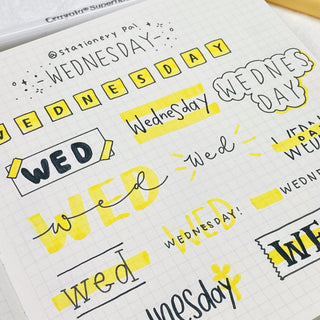 Crayola® Super
@stationery pal
WEDNESDAY
WEDNESDAY
Wednesday
WEDNES
DAY
WED
Wed
WED
wed
WED
WEDNESDAY!
WEDNES
wed
WE
nesday